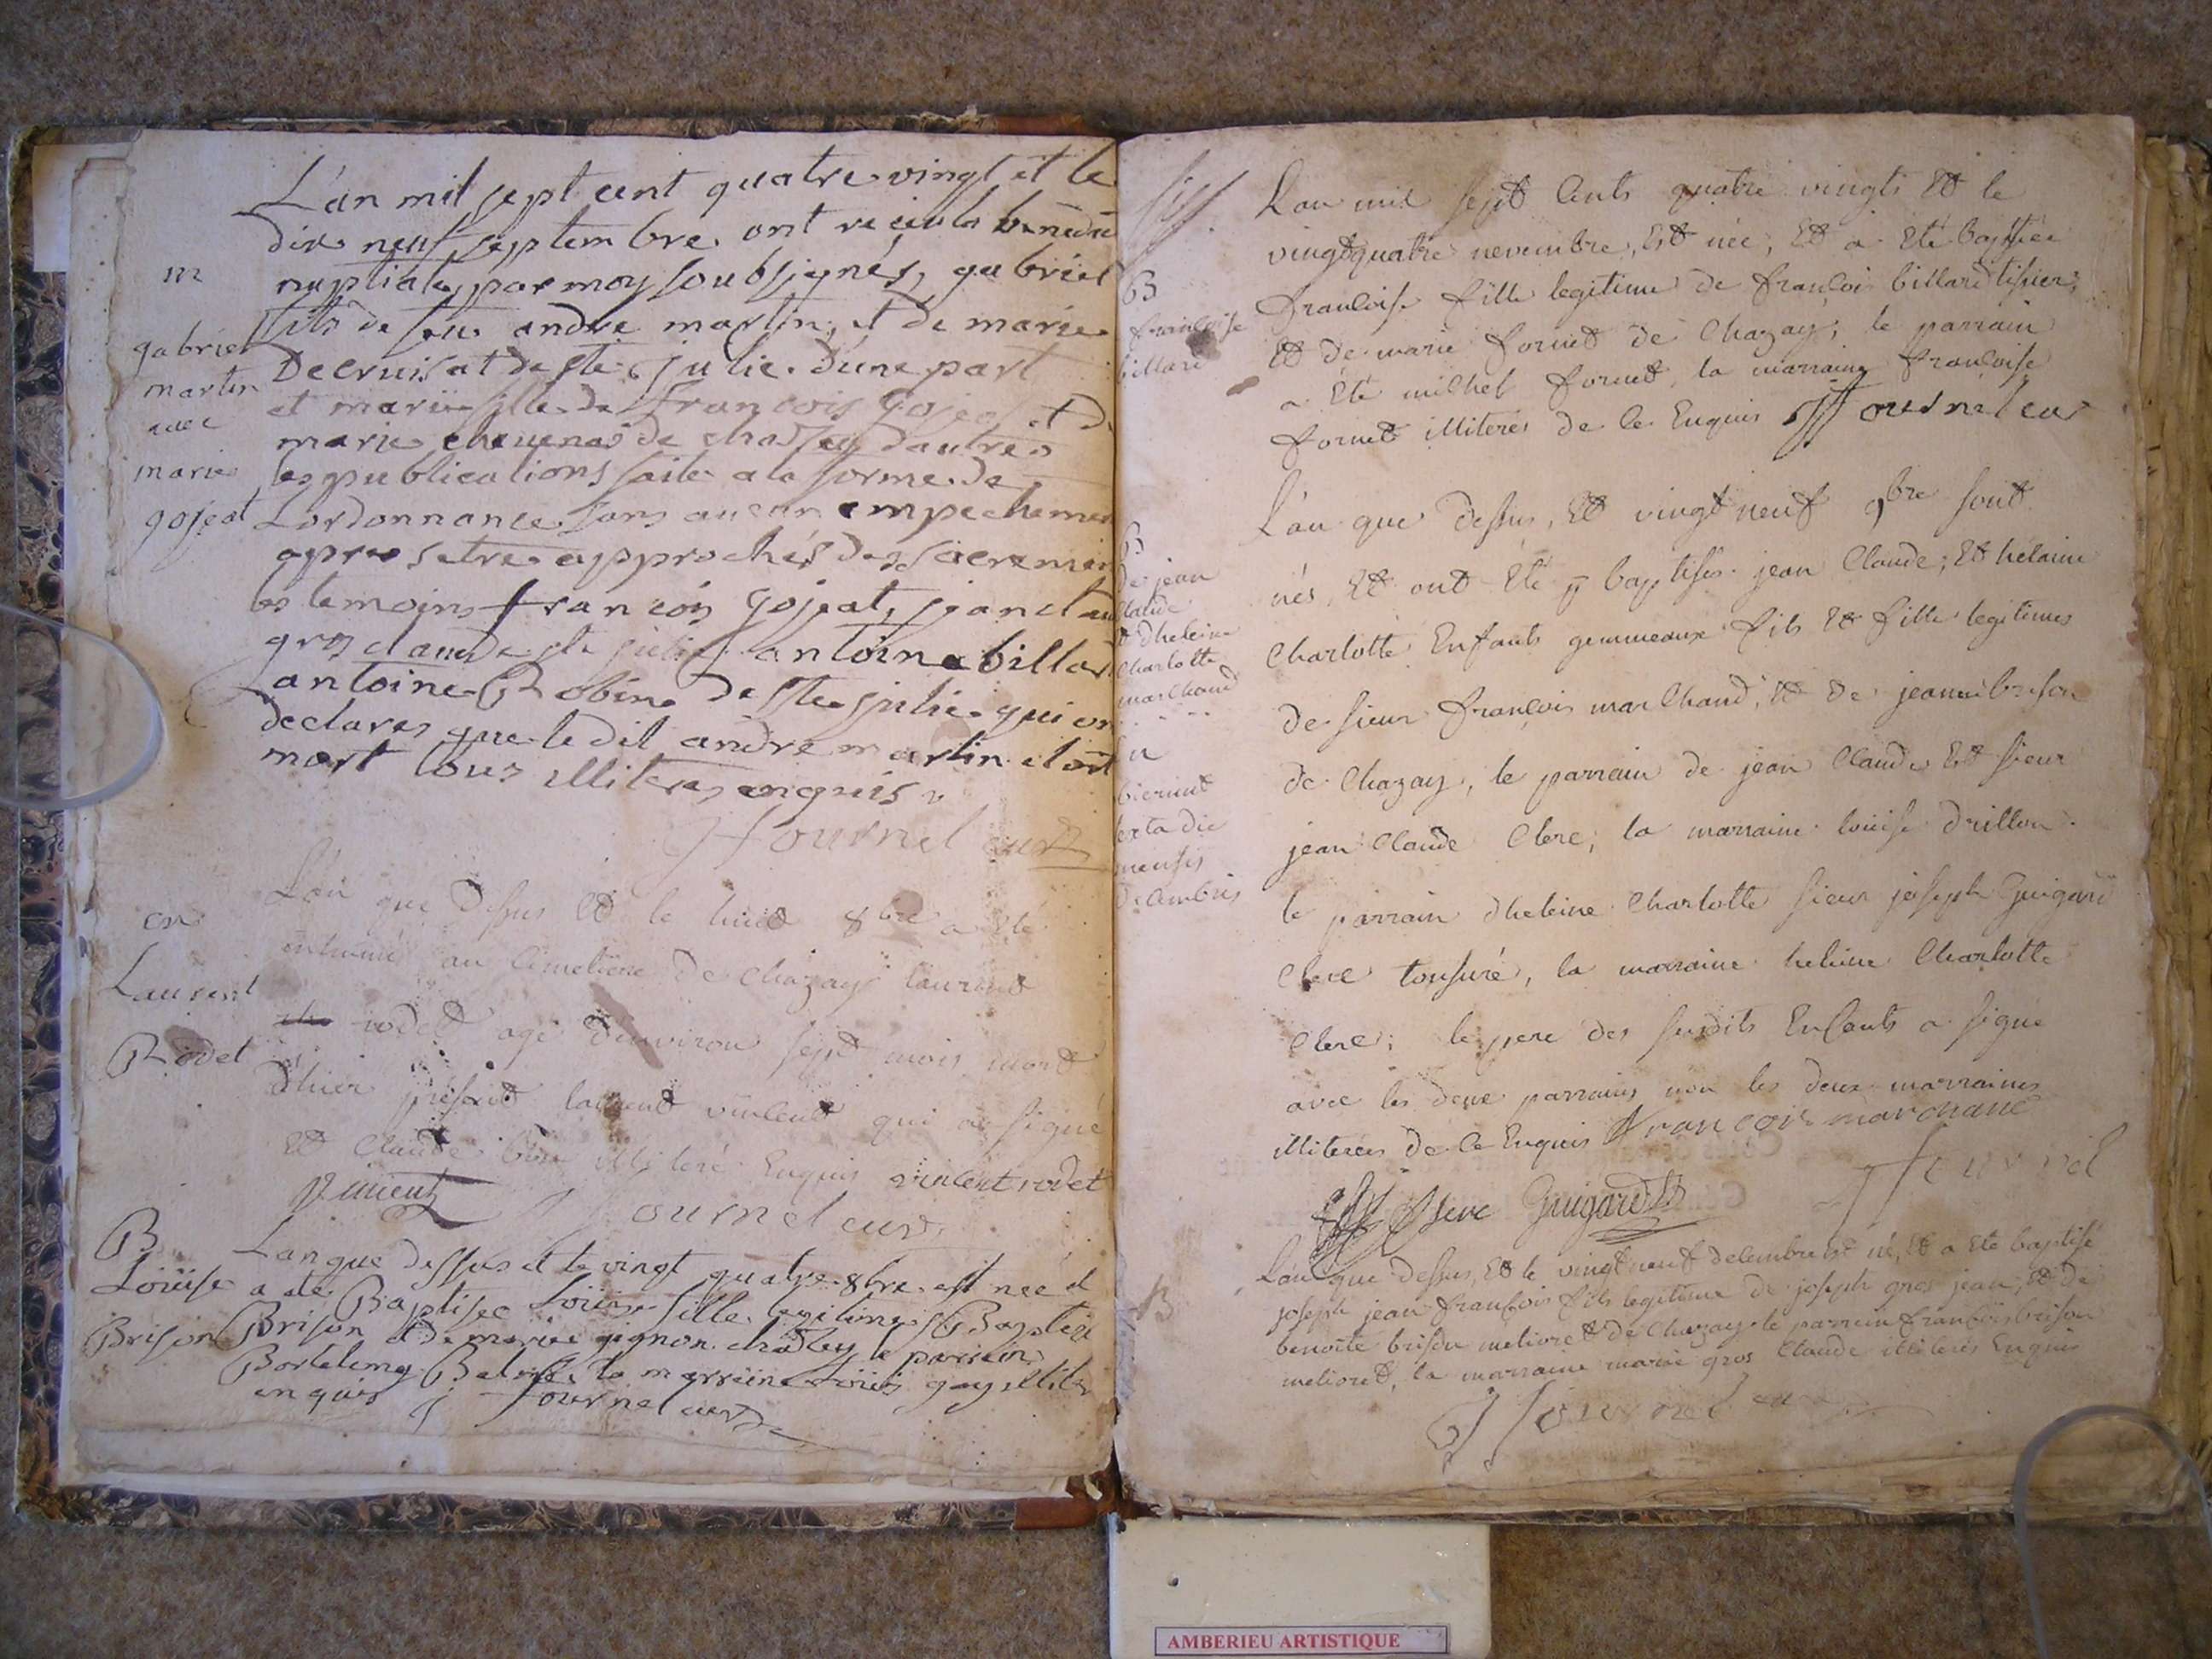 L'an mil sept cent quatre vingt et le
dix neuf septembre ont reçeu la bénédic
nuptiale, par moy soubsignés, gabriel
fils de feu andré martin, et de marie
Decruisat de ste julie d'une part
et marie fille de francois Gojeat et D
marie chevenas de chassey d'autre
les publications faite a la forme de
Lordonnance sans aucun empechemen
apres setre approchés des sacremen
les temoins françois Gojeat, jean claud
gros claude ste julie antoine billar
antoine Robin de ste julie qui on
declares que le dit andre martin étoit
mort tous illiteres enquis
m
gabriel
martin
avec
marie
gojeat
fournel curé
L'an que dessus et le huit 8bre a été
inhumé au cimetiere de chazay laurent
rodet agé d'environ sept mois mort
d'hier présent laurent vincent qui a signé
et claude illiteré enquis vincent rodet
en
Laurent
Rodet
vincent fournel curé
Lan que dessus et le vingt quatre 8bre est née et
a été Baptisée Loüise fille legitime de Baptiste
Brison et de marie gignon chassey le parrein
Bortelemy la marreine Loüis gay illite
enquis j fournel curé
B
Loüise
Brison
L'an mil sept cents quatre vingts et le
vingt quatre novembre, est née, et a été baptisée
francoise fille legitime de françois billard tissier;
et de marie fornet de chazay; le parrain
a été michel fornet, la marraine françoise
fornet illiterés de ce enquis fournel curé
B
francoise
billard
L'an que dessus, et vingt neuf 9bre sont
nés, et ont été baptisés jean claude; et hélaine
charlotte enfants gemmeaux fils et fille legitimes
de sieur françois marchand, et de jeanne brison
de chazay, le parrain de jean claude est sieur
jean claude clerc; la marraine louise drillon
le parrain d'heleine charlotte sieur joseph Guigard
clerc tonsuré, la marraine heleine charlotte
clerc; le pere des susdits enfants a signé
avec les deux parrains non les deux marraines
illiterées de ce enquis francois marchand
B
de jean
claude
et d'heleine
charlotte
marchand
obierunt
sexta die
mensis
decembris
Clerc Guigard fournel
L'an que dessus, et le vingt neuf decembre est né, et a été baptisé
joseph jean françois fils legitime de joseph gros jean, et de
benoite brison melioret de chazay le parrein françois brison
melioret, la marraine marie gros claude illiterés enquis
B
fournel curé
AMBERIEU ARTISTIQUE